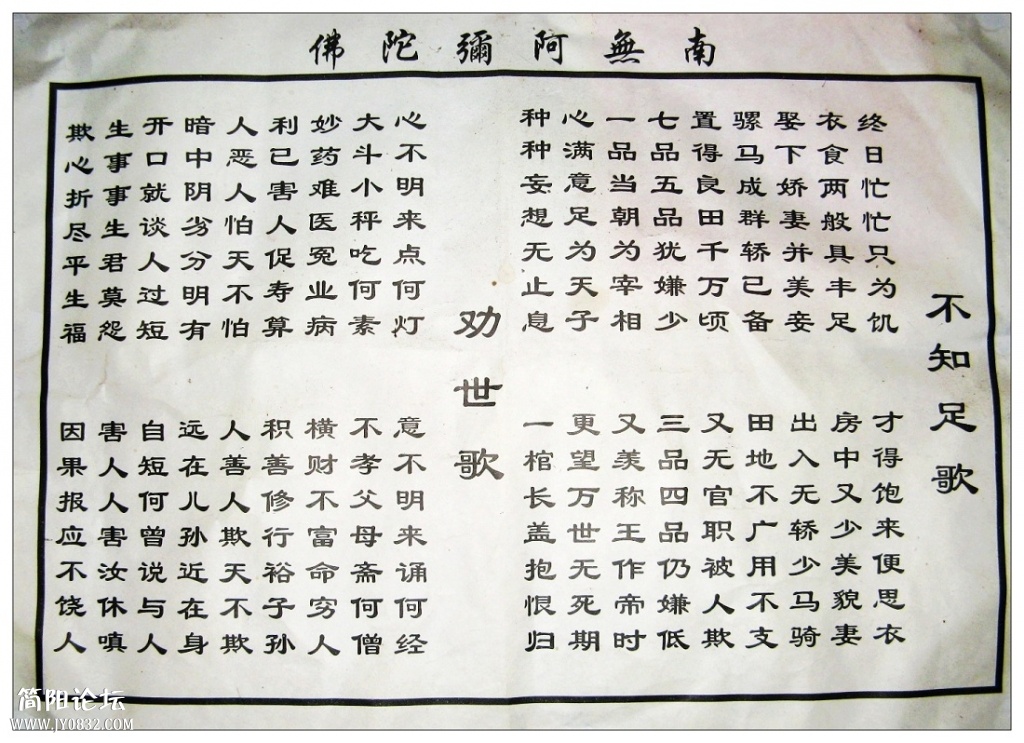 南無阿彌陀佛
不知足歌
终日忙忙只为饥 才得饱来便思衣
衣食两般具丰足 房中又少美貌妻
娶下娇妻并美妾 出入无轿少马骑
骡马成群轿已备 田地不广用不支
置得良田千万顷 又无官职被人欺
七品五品犹嫌少 三品四品仍嫌低
一品当朝为宰相 又羡称王作帝时
心满意足为天子 更望万世无死期
种种妄想无止息 一棺长盖抱恨归
劝世歌
心不明来点何灯 意不明来诵何经
大斗小秤吃何素 不孝父母斋何僧
妙药难医冤业病 横财不富命穷人
利己害人促寿算 积善修行裕子孙
人恶人怕天不怕 人善人欺天不欺
暗中阴劣分明有 远在儿孙近在身
开口就谈人过短 自短何曾说与人
生事事生君莫怨 害人人害汝休嗔
欺心折尽平生福 因果报应不饶人
简阳论坛
www.JY0832.COM